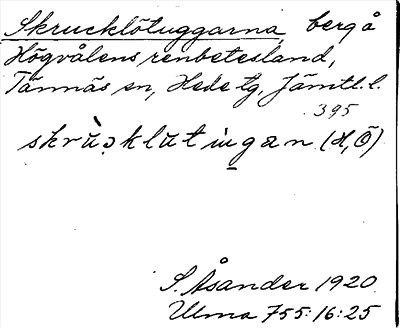 Skrucklötuggarna berg å
Högvålens renbetesland,
Tännäs sn, Hede tg, Jämtl. l.
395
skrùcklutiŋgan (H, Ö)
S. Åsander 1920
Ulma 755:16:25